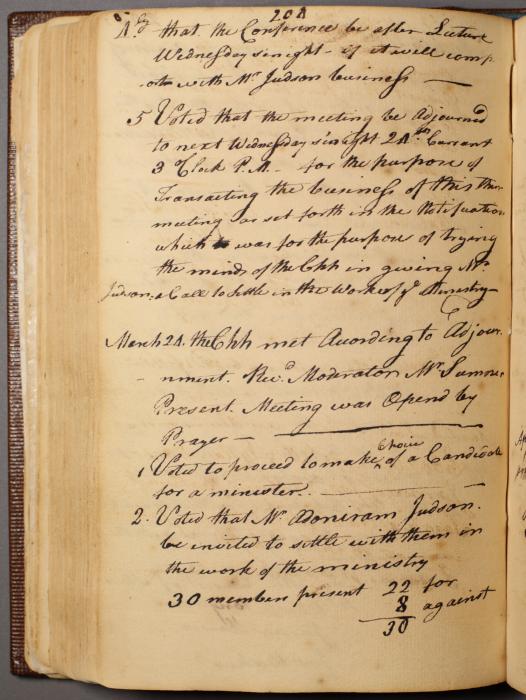 204
4ly that the Conference be after Lecture
Wednesday sinight - if it will comp
-ort with Mr Judson business —
5 Voted that the meeting be Adjourned
to next Wednesday s'inight 24th Currant
3 oClock P.M. - for the purpose of
Transacting the business of this
meeting as set forth in the Notification
which was for the purpose of trying
the minds of the Chh in giving Mr
Judson: a Call to Settle in the Work of ye Ministry
March 24. the Chh met According to Adjour-
- nment. Revd Moderator Mr
Present. Meeting was Opend by
Prayer —
1 Voted to proceed to make choice of a Candidate
for a minister.
2. Voted that Mr Adoniram Judson.
be invited to settle with them in
the work of the ministry
30 members present 22 for
8 against
30